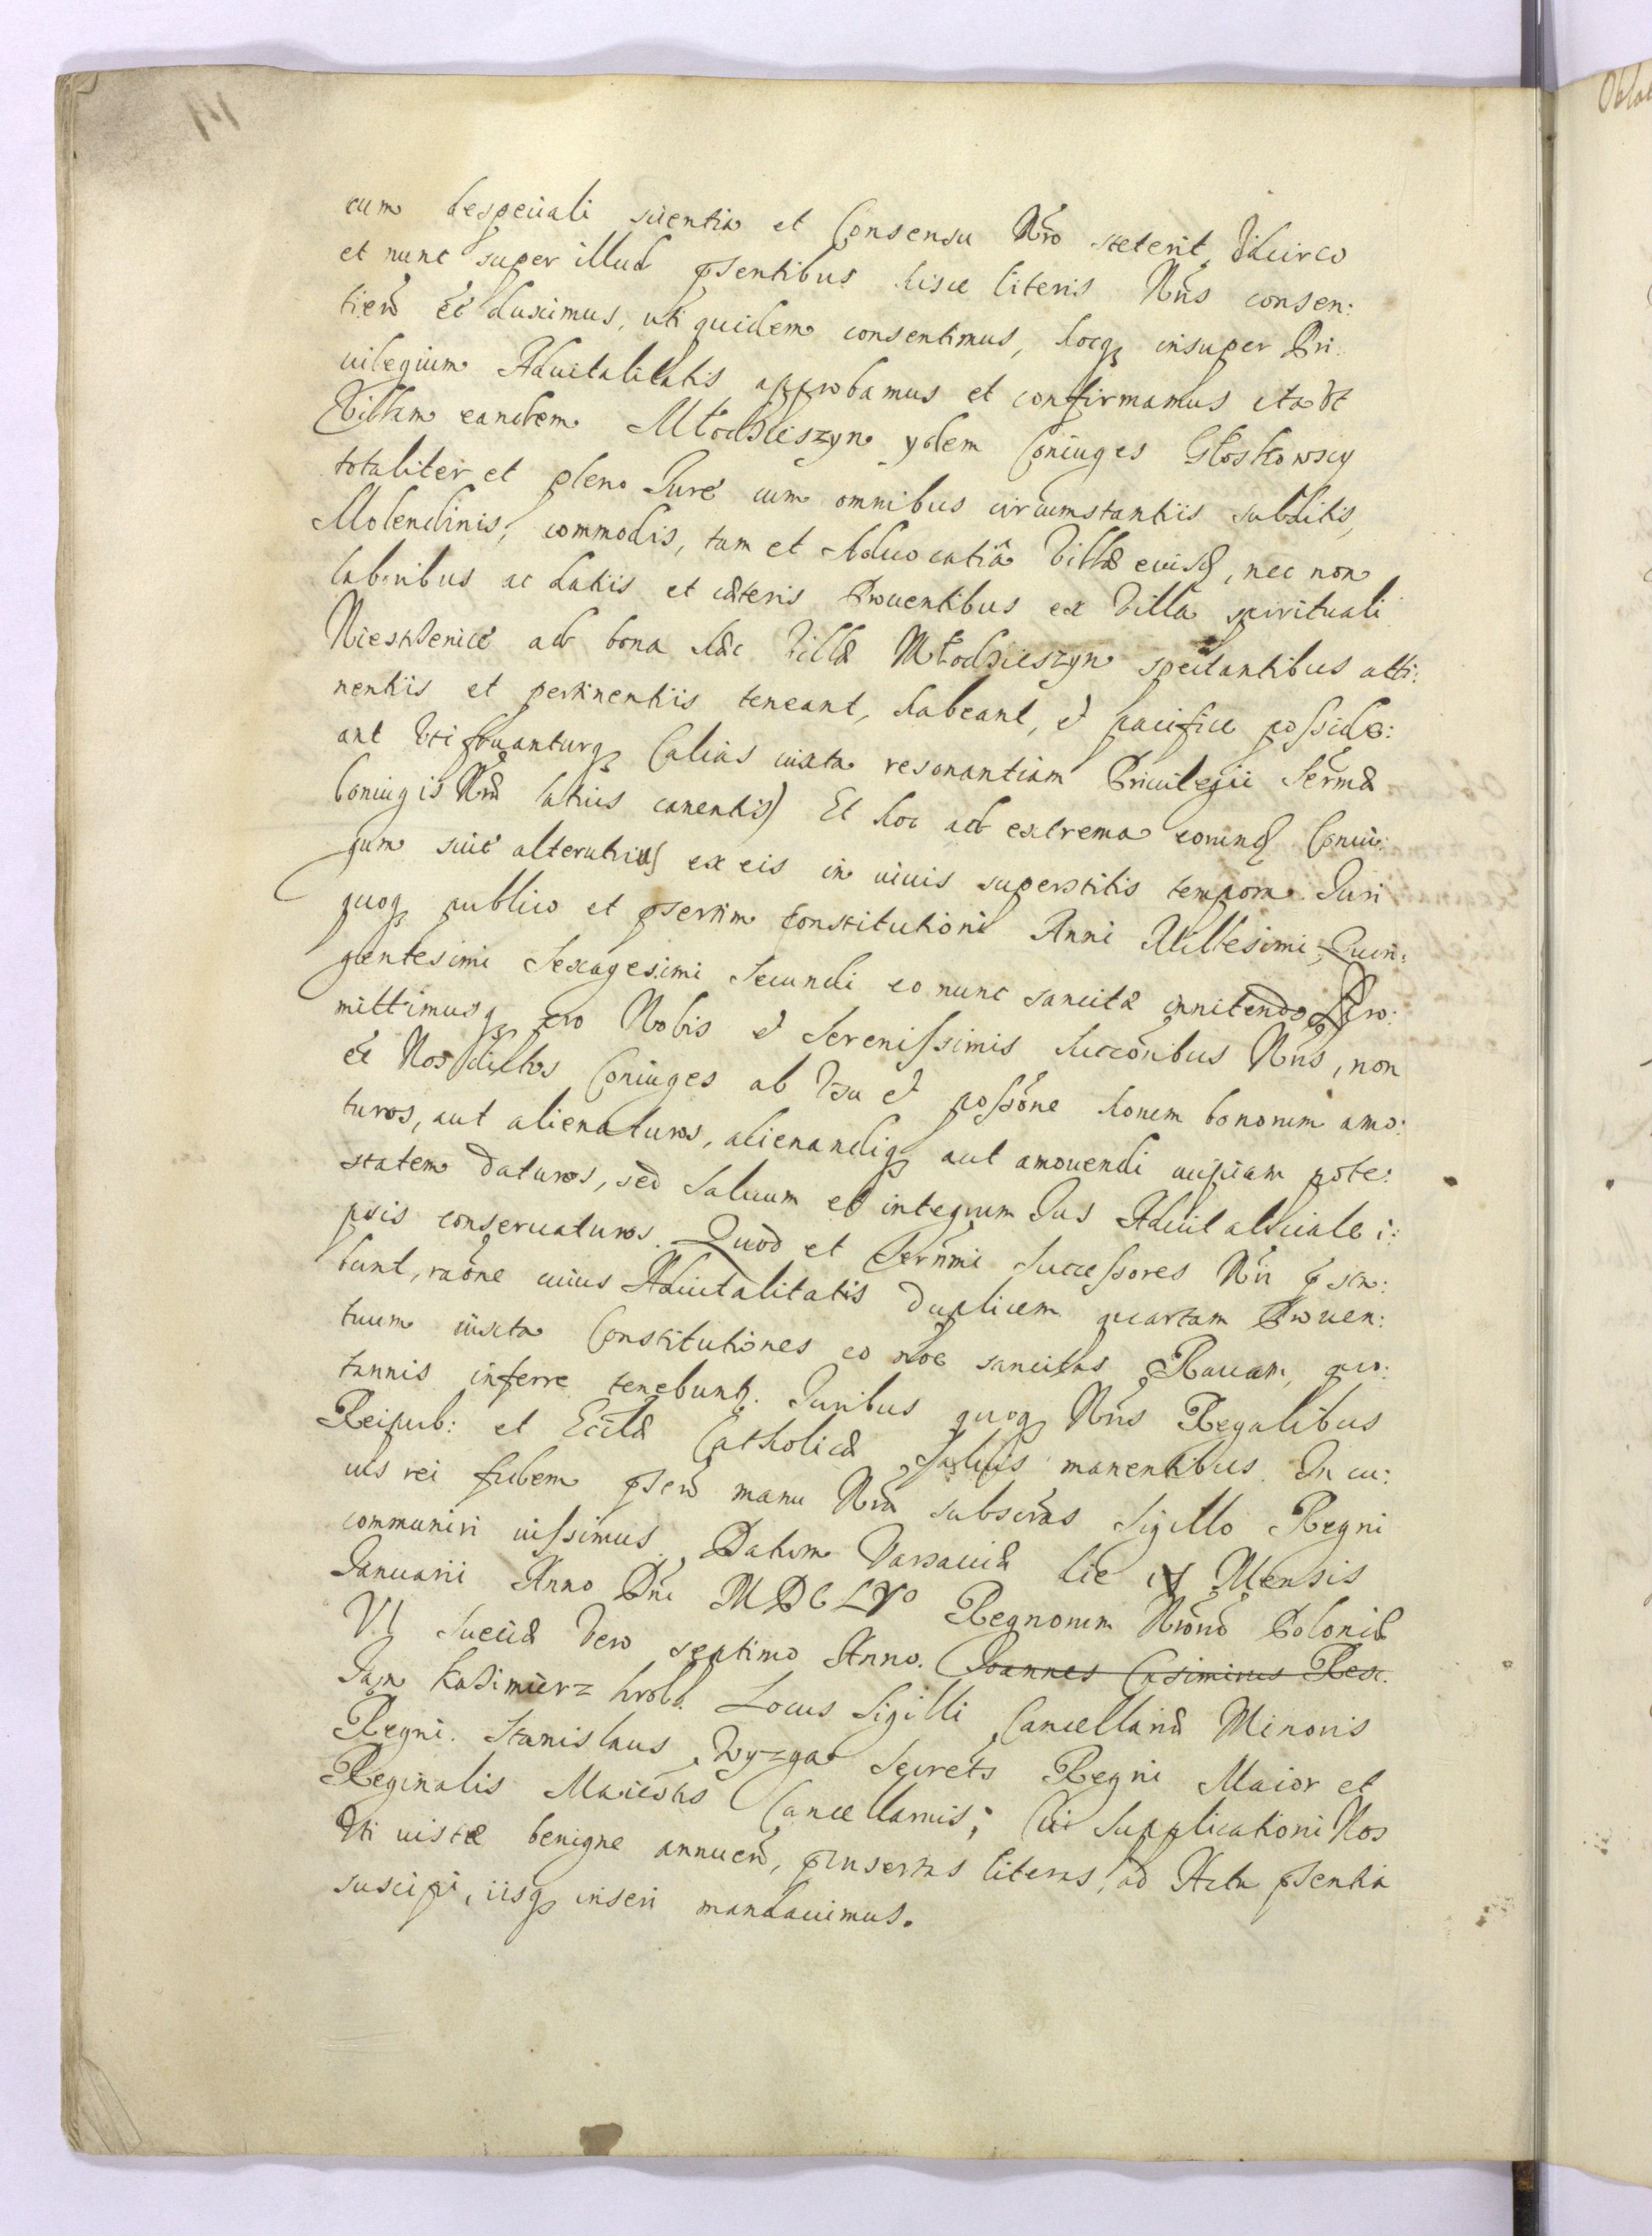 cum de speciali scientia et Consensu Nro steterit, Idcirco
et nunc super illud pńsentibus hisce literis Nris consen:
tien̄ e͞e duximus, uti quidem consentimus, hocq insuper Pri:
uilegium Aduitalitatis approbamus et confirmamus ita Vt
Villam eandem Młodzieszyn ydem Coniuges Głoskowscy
totaliter et pleno Jure cum omnibus circumstantiis subditis,
Molendinis, commodis, tam et Aduocatiâ Villæ eiusd, nec non
laboribus ac datiis et cæteris Prouentibus ex Villa spirituali
ad bona hæc Villæ Młodzieszyn spectantibus atti:
nentiis et pertinentiis teneant, habeant, et pacifice posside:
ant Vtifruanturq (alias iuxta resonantiam Priuilegii Serm̄æ
Coniugis Nræ latius canentis) Et hoc ad extrema eorund Coniu:
gum siue alterutrius ex eis in viuis superstitis tempora. Juri
quoq publico et pńsertim Constitutioni Anni Millesimi, Quin:
gentesimi Sexagesimi Secundi eo nunc sancitæ innitendo, Pro:
mittimusq pro Nobis et Serenissimis Succōribus Nris, non
e͞e Nos dictos Coniuges ab Vsu et possōne horum bonorum amo:
turos, aut alienaturos, alienandiq aut amouendi cuipiam pote:
statem daturos, sed saluum et integrum Jus Aduitalitiale i:
psis conseruaturos. Quod et Sern̄mi Successores Nri pństa:
bunt, raōne cuius Aduitalitatis duplicem quartam Prouen:
tuum iuxta Constitutiones eo noe sancitas Rauam, quo:
tannis inferre tenebunt. Juribus quoq Nris Regalibus
Reipub: et Eccl̄æ Catholicæ Saluis manentibus. In cu:
ius rei fidem pńsen̄ manu Nra subscr̄as Sigillo Regni
communiri iussimus. Datum Varsauiæ die Mensis
Januarii Anno Dni MDCLVo Regnorum Nrorū Poloniæ
VI Sueciæ Vero septimo Anno. Joannes Casimirus Rex.
Jan Kazimierz krol. Locus Sigilli Cancellariæ Minoris
Regni. Stanislaus Wyzga Secrets Regni Maior et
Reginalis Maiestatis Cancellarius; Cui Supplicationi Nos
Vti iustæ benigne annuen̄, pńinsertas literas ad Acta pńsentia
suscipi, iisq inseri mandauimus.